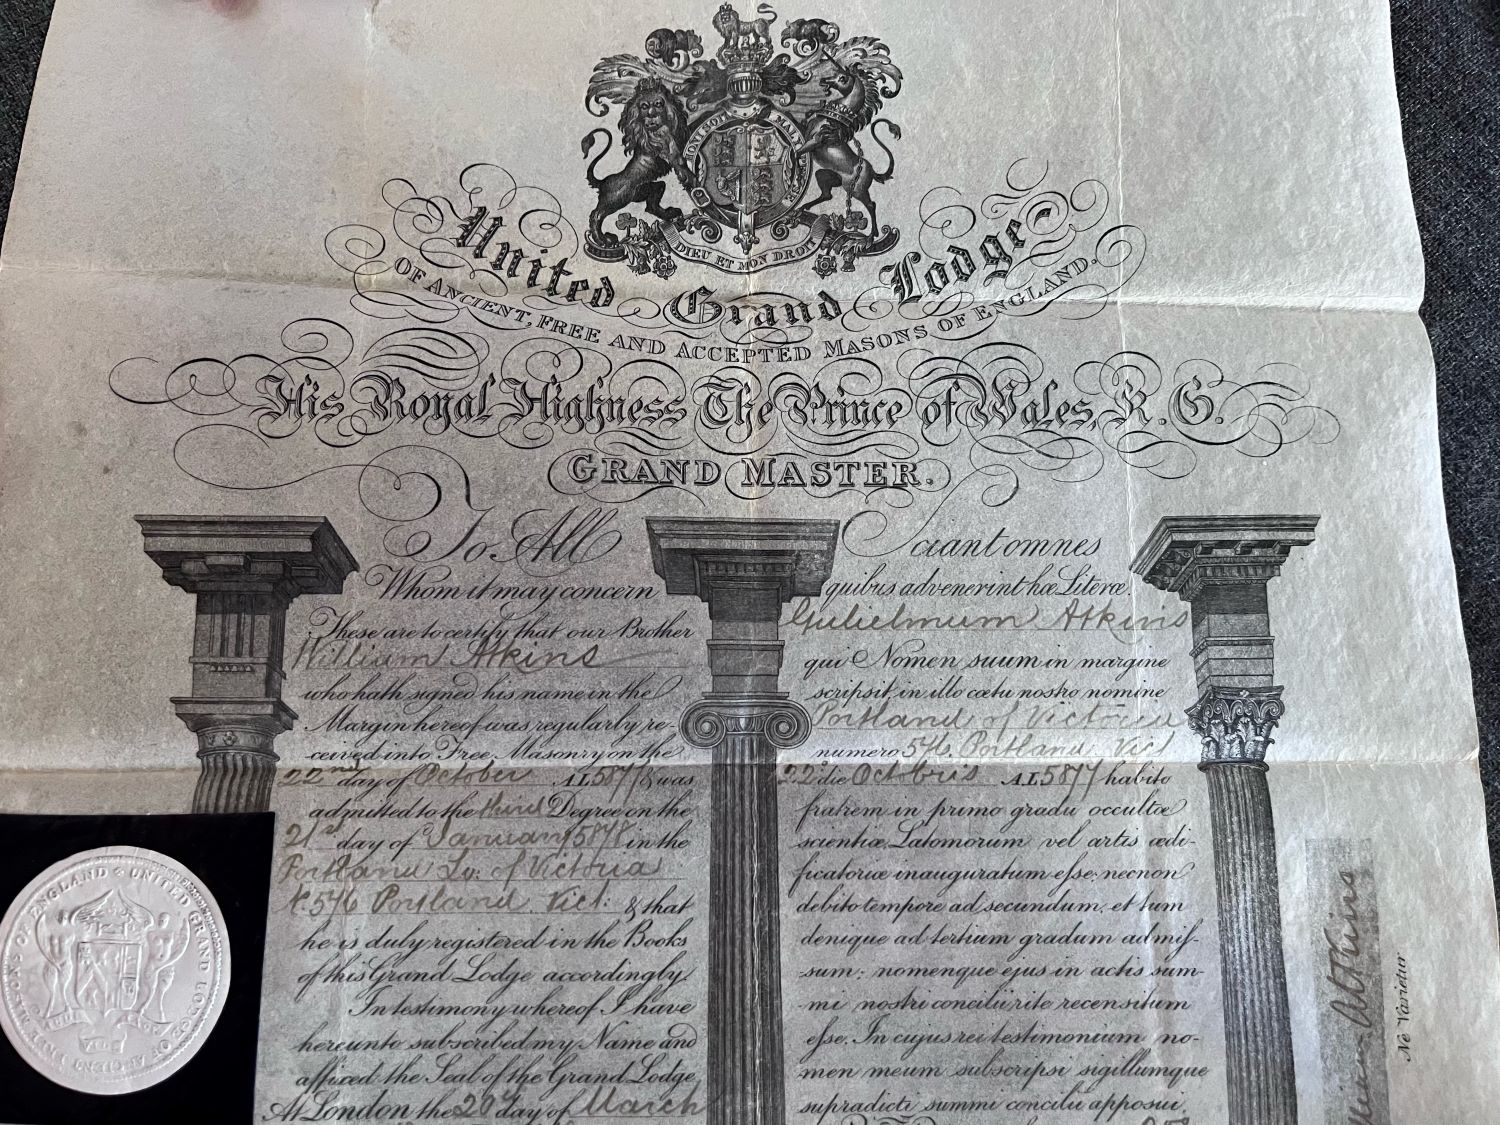 HONI SOIT QUI MAL Y PENSE
DIEU ET MON DROIT
United Grand Lodge
OF ANCIENT, FREE AND ACCEPTED MASONS OF ENGLAND.
His Royal Highness The Prince of Wales, K. G.
GRAND MASTER.
To All
Whom it may concern
These are to certify that our Brother
William Atkins
who hath signed his name in the
Margin hereof was regularly re-
ceived into Free Masonry on the
22nd day of October A.L 5877 & was
admitted to the third Degree on the
21st day of January 5878 in the
Portland Lo: of Victoria
N. 546 Portland Vict: & that
he is duly registered in the Books
of this Grand Lodge accordingly.
In testimony whereof I have
hereunto subscribed my Name and
affixed the Seal of the Grand Lodge,
At London the 20th day of March
Sciant omnes
quibus advenerint hœ Literœ.
Gulielmum Atkins
qui Nomen suum in margine
scripsit, in illo cœtu nostro nomine
Portland of Victoria
numero 546. Portland Vict
22º die Octobris A.L 5877 habito
fratrem in primo gradu occultœ
scientiœ Latomorum vel artis œdi-
ficatoriœ inauguratum esse; necnon
debito tempore ad secundum, et tum
denique ad tertium gradum admis-
-sum: nomenque ejus in actis sum-
-mi nostri concilii rite recensitum
esse. In cujus rei testimonium no-
-men meum subscripsi sigillumque
supradicti summi concilii apposui.
Atkins
Ne Varietur
UNITED GRAND LODGE OF ANCIENT FREE MASONS OF ENGLAND